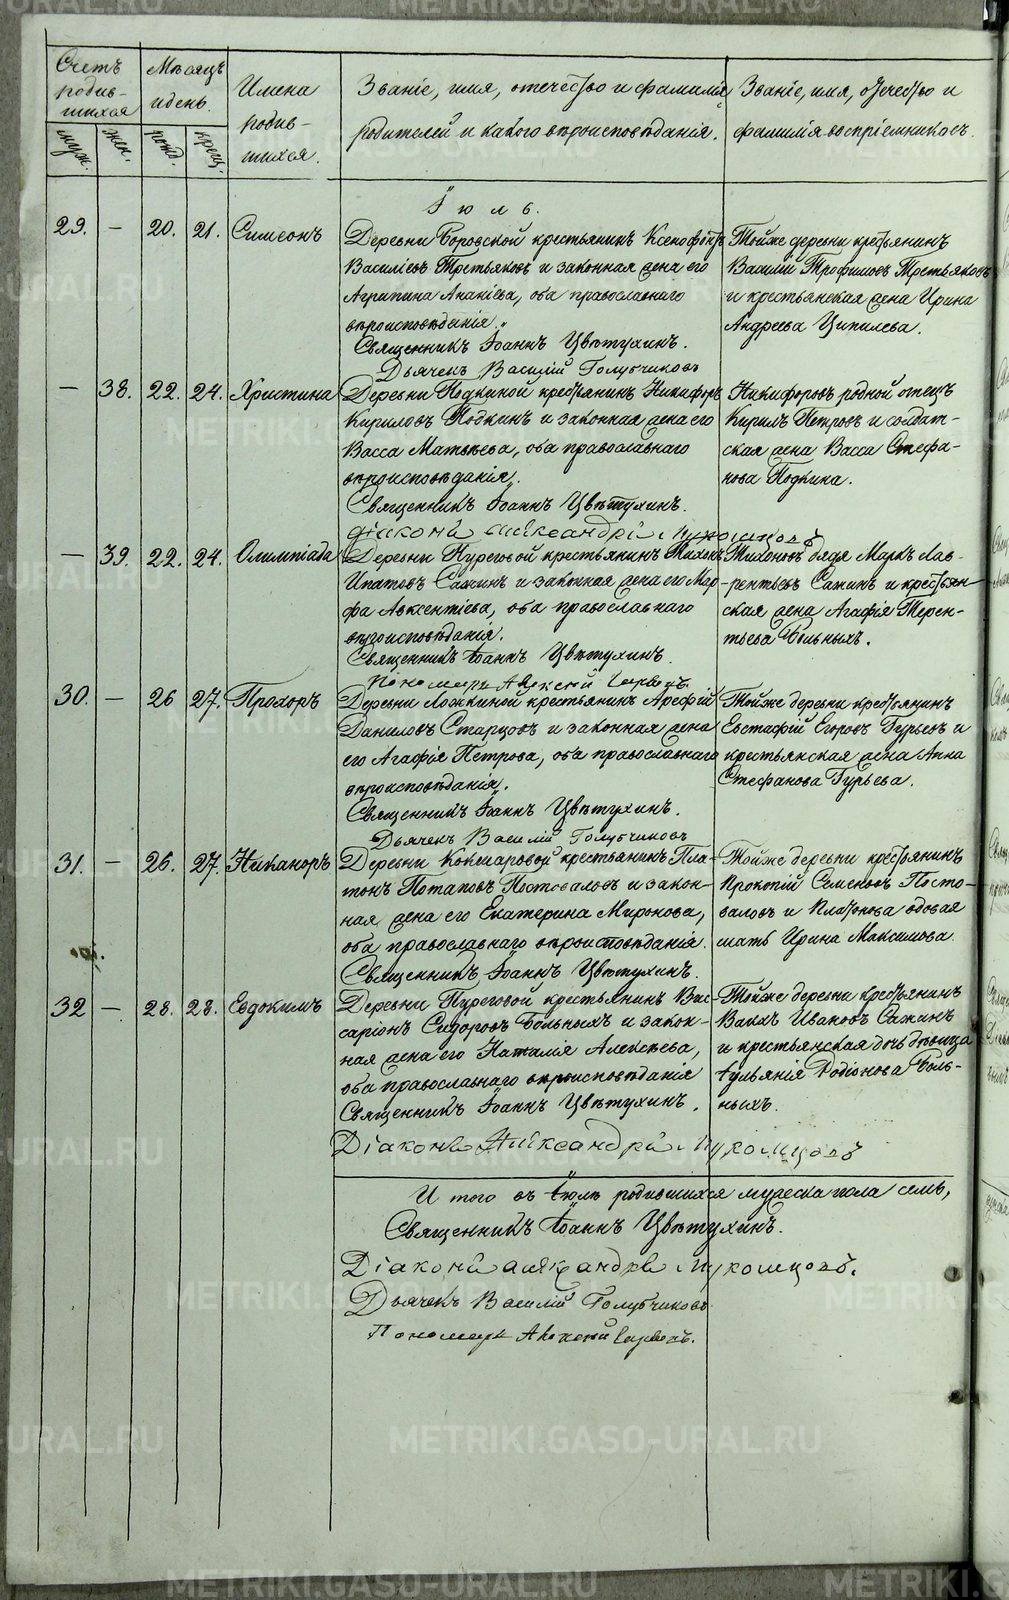 Счетъ родив-
шихся
Мѣсяцъ
и день.
Имена
родив-
шихся.
Званіе, имя, отечество и фамилія
родителей и какого вѣроисповѣданія.
Званіе, имя, отечество и
фамилія воспріемниковъ.
муж.
жен.
рожд.
крещ.
Іюль.
29. — 20. 21. Симеонъ
Деревни Боровской крестьянинъ Ксенофонтъ
Василіевъ Третьяковъ и законная жена его
Агрипина Ананіева, оба православнаго
вѣроисповѣданія.
Священникъ Іоаннъ Цвѣтухинъ.
Дьячекъ Василій Голубчиковъ
Тойже деревни крестьянинъ
Василій Трофимовъ Третьяковъ
и крестьянская жена Ирина
Андреева Ципилева.
— 38. 22. 24. Христина
Деревни Подкиной крестьянинъ Никифоръ
Кириловъ Подкинъ и законная жена его
Васса Матвѣева, оба православнаго
вѣроисповѣданія.
Священникъ Іоаннъ Цвѣтухинъ.
Діаконъ Александръ Мукомцовъ
Никифоровъ родной отецъ
Кирилъ Петровъ и солдат-
ская жена Васса Стефа-
нова Подкина.
— 39. 22. 24. Олимпіада
Деревни Пуреговой крестьянинъ Тихонъ
Ипатовъ Сажинъ и законная жена его Мар-
фа Авксентіева, оба православнаго
вѣроисповѣданія.
Священникъ Іоаннъ Цвѣтухинъ.
Пономарь Алексей
Тихоновъ дядя Маркъ Лав-
рентьевъ Сажинъ и крестьян-
ская жена Агафія Терен-
тьева Больныхъ.
30. — 26 27. Прохоръ
Деревни Ложкиной крестьянинъ Арефій
Даниловъ Старцовъ и законная жена
его Агафія Петрова, оба православнаго
вѣроисповѣданія.
Священникъ Іоаннъ Цвѣтухинъ.
Дьячекъ Василій Голубчиковъ
Тойже деревни крестьянинъ
Евстафій Егоровъ Гурьевъ и
крестьянская жена Анна
Стефанова Гурьева.
31. — 26. 27. Никаноръ
Деревни Кокшаровой крестьянинъ Пла-
тонъ Потаповъ Постоваловъ и закон-
ная жена его Екатерина Миронова,
оба православнаго вѣроисповѣданія.
Священникъ Іоаннъ Цвѣтухинъ.
Тойже деревни крестьянинъ
Прокопій Семеновъ Посто-
валовъ и Платонова вдовая
мать Ирина Максимова.
32 — 28. 28. Евдокимъ
Деревни Пуреговой крестьянинъ Вис-
саріонъ Сидоровъ Больныхъ и закон-
ная жена его Наталія Алексѣева,
оба православнаго вѣроисповѣданія
Священникъ Іоаннъ Цвѣтухинъ.
Діаконъ Александръ Мукомцовъ
Тойже деревни крестьянинъ
Вакхъ Ивановъ Сажинъ
и крестьянская дочь дѣвица
Іульянія Родіонова Боль-
ныхъ.
И того въ Іюлѣ родившихся мужеска пола семь,
Священникъ Іоаннъ Цвѣтухинъ.
Діаконъ Александръ Мукомцовъ.
Дьячекъ Василій Голубчиковъ
Пономарь Алексей
METRIKI.GASO-URAL.RU